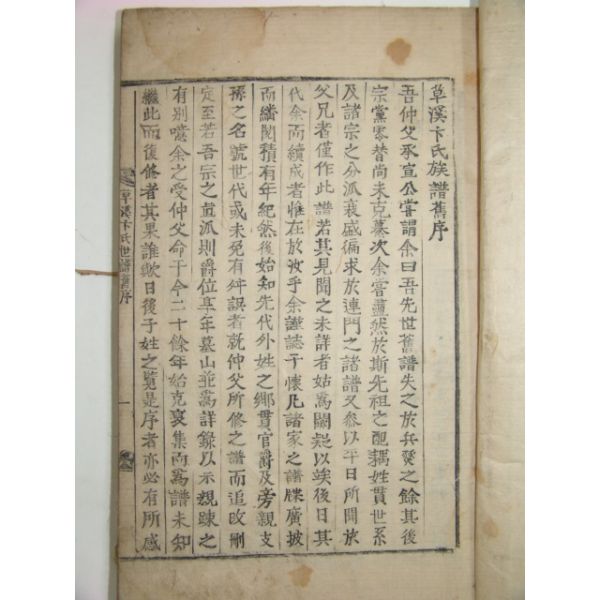 草溪卞氏族譜舊序
吾仲父承宣公嘗謂余曰吾先世舊譜失之於兵燹之餘其後
宗黨零替尚未克纂次余嘗盡然於斯先祖之配耦姓貫世系
及諸宗之分派衰盛徧求於連門之諸譜又叅以平日所聞於
父兄者僅作此譜若其見聞之未詳者姑爲闕疑以竢後日其
代余而續成者惟在於汝乎余謹誌于懷凡諸家之譜牒廣披
而繙閱積有年紀然後始知先代外姓之鄕貫官爵及旁親支
孫之名號世代或未免有舛誤者就仲父所修之譜而追改刪
定至若吾宗之直派則爵位某年墓山並爲詳錄以示親踈之
有別噫余之受仲父命于今二十餘年始克裒集而爲譜未知
繼此而後修者其果誰歟日後子姓之覽是序者亦必有所感
草溪卞氏世譜舊序 一